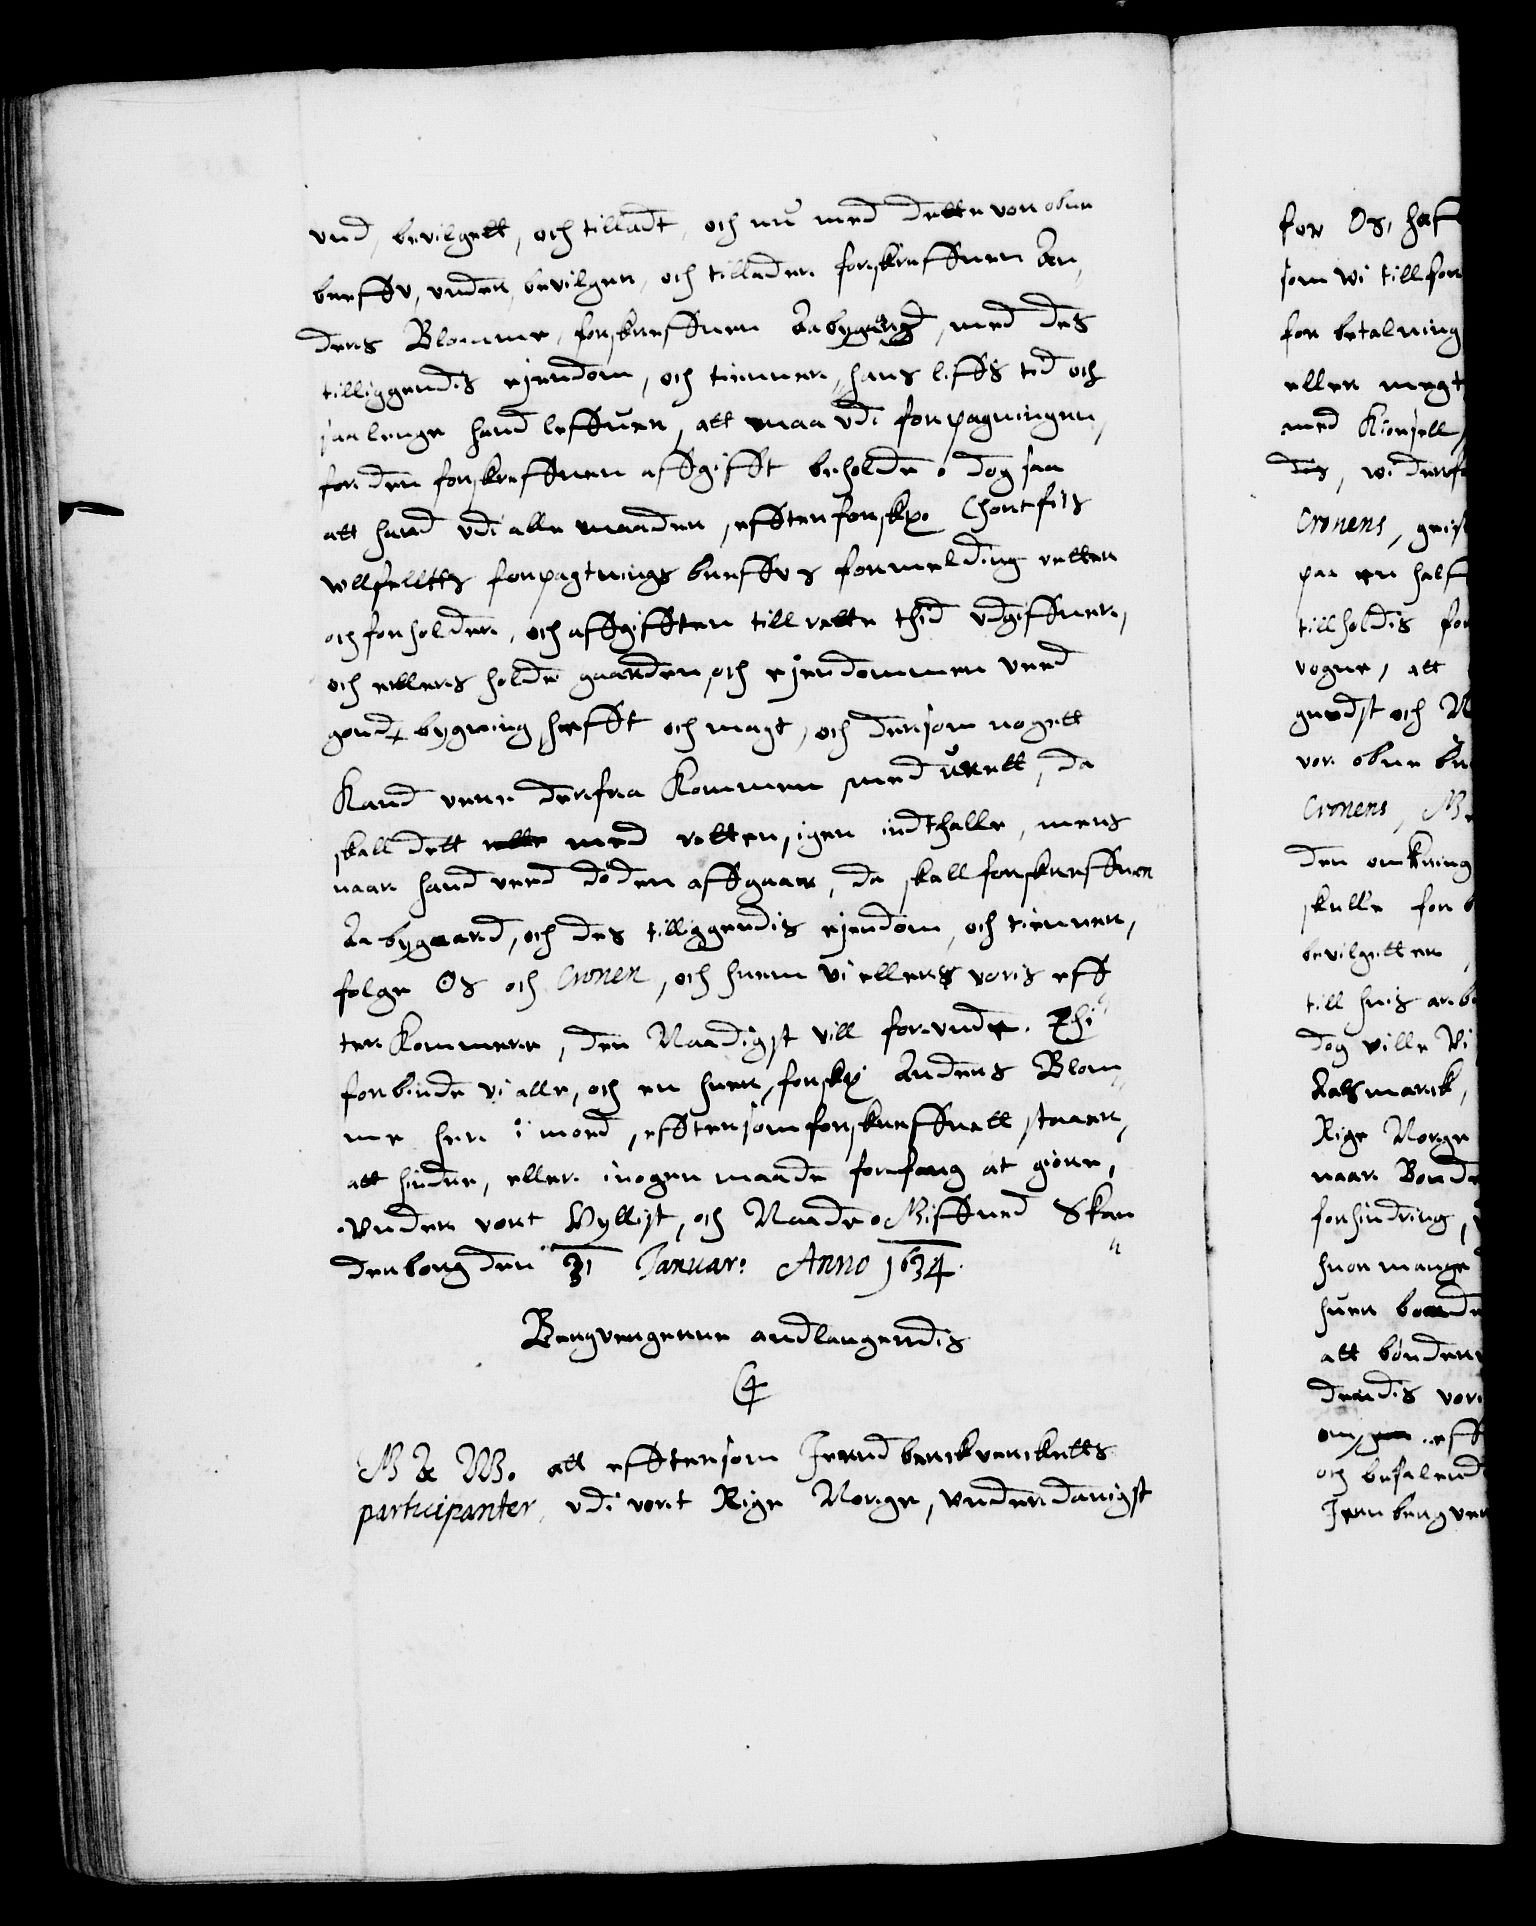 und, bevilgett, och tilladt, och nu med dette vor obne
breff, under, bevilger, och tillader forskreffne An,
ders Blomme, forskreffne Aabygard, med des
tilliggendis ejendom, och tienner, hans liffs tid och
saa lenge hand leffuer, att maa udi forpagningen,
for den forskreffne affgifft beholde. dog saa
att hand udi alle maader, effter forskr.
Ulfeltts forpagtnings breffvs formelding retter
och forholder, och affgifften till rette thid udgiffuer,
och ellers holde gaarden, och ejendommen veed
goud bygning hefft och magt, och dersom nogett
Kand vere derfra Kommen med urett, da
skall dett rette med retten, igen indthalle, mens
naar hand veed döden affgaar, da skall forskreffne
Aabygaard, och des tilliggendis ejendom, och tienner,
folge Os och Cronen, och huem vi ellers voris eff
ter Kommere, den Naadigst vill forunde. Thi
forbinde vi alle, och en huer, forskr. Anders Blom
me her i moed, efftersom forskreffuett staar,
att hindre, eller i nogen maade forfang at giøre,
Under vort Hyllist, och Naade. Giffued Skan
derborg den 31 Januar: Anno 1634.
Bergvergerne andlangendis
C 4
G A W. att efftersom Jernd berckvercketts
participanter, udi vort Rige Norge, underdanigst
for Os, haf
som wi till for
for betalning
eller megt
med Kiørsell,
des, wi derfo
Cronens, geis
paa en half
tillholdis for
vogne, att
gundst och N
vor obne br
Cronens, M
den omkring
skulle for b
bevilgett er
till huis arb
dog ville Vi
Aalsmarck,
Rige Norge
naar Bonde
forhindring,
huor mange
huer bonde
att bønderne
dendis vor
om, eff
och befalend
Jern bergver